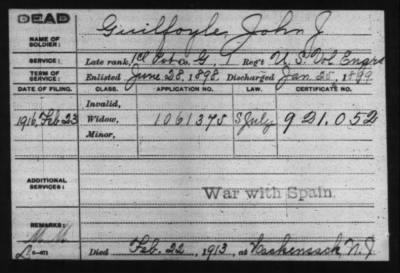 DEAD
NAME OF SOLDIER: Guilfoyle, John J.
SERVICE: Late rank, 1 Cl Pvt Co. G, 1 Reg't U.S. Vol. Engrs
TERM OF SERVICE: Enlisted June 28, 1898. Discharged Jan 25, 1899
DATE OF FILING. CLASS. APPLICATION NO. LAW. CERTIFICATE NO.
Invalid,
1916 Feb 23 Widow, 1061375 S July 921.052
Minor,
ADDITIONAL SERVICES:
War with Spain.
REMARKS:
6-471 Died Feb. 22, 1913, at Hackensack, N.J.